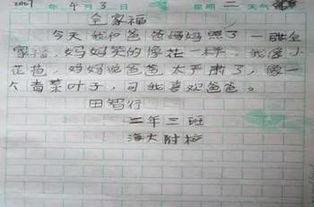 2007年4月3日 星期二 天气
全家福
今天我和爸爸妈妈照了一张全
家福,妈妈笑的像花一样,我像小
花猫,妈妈说爸爸太严肃了,像一
个青菜叶子,可我喜欢爸爸。
田智行
二年三班
海大附校